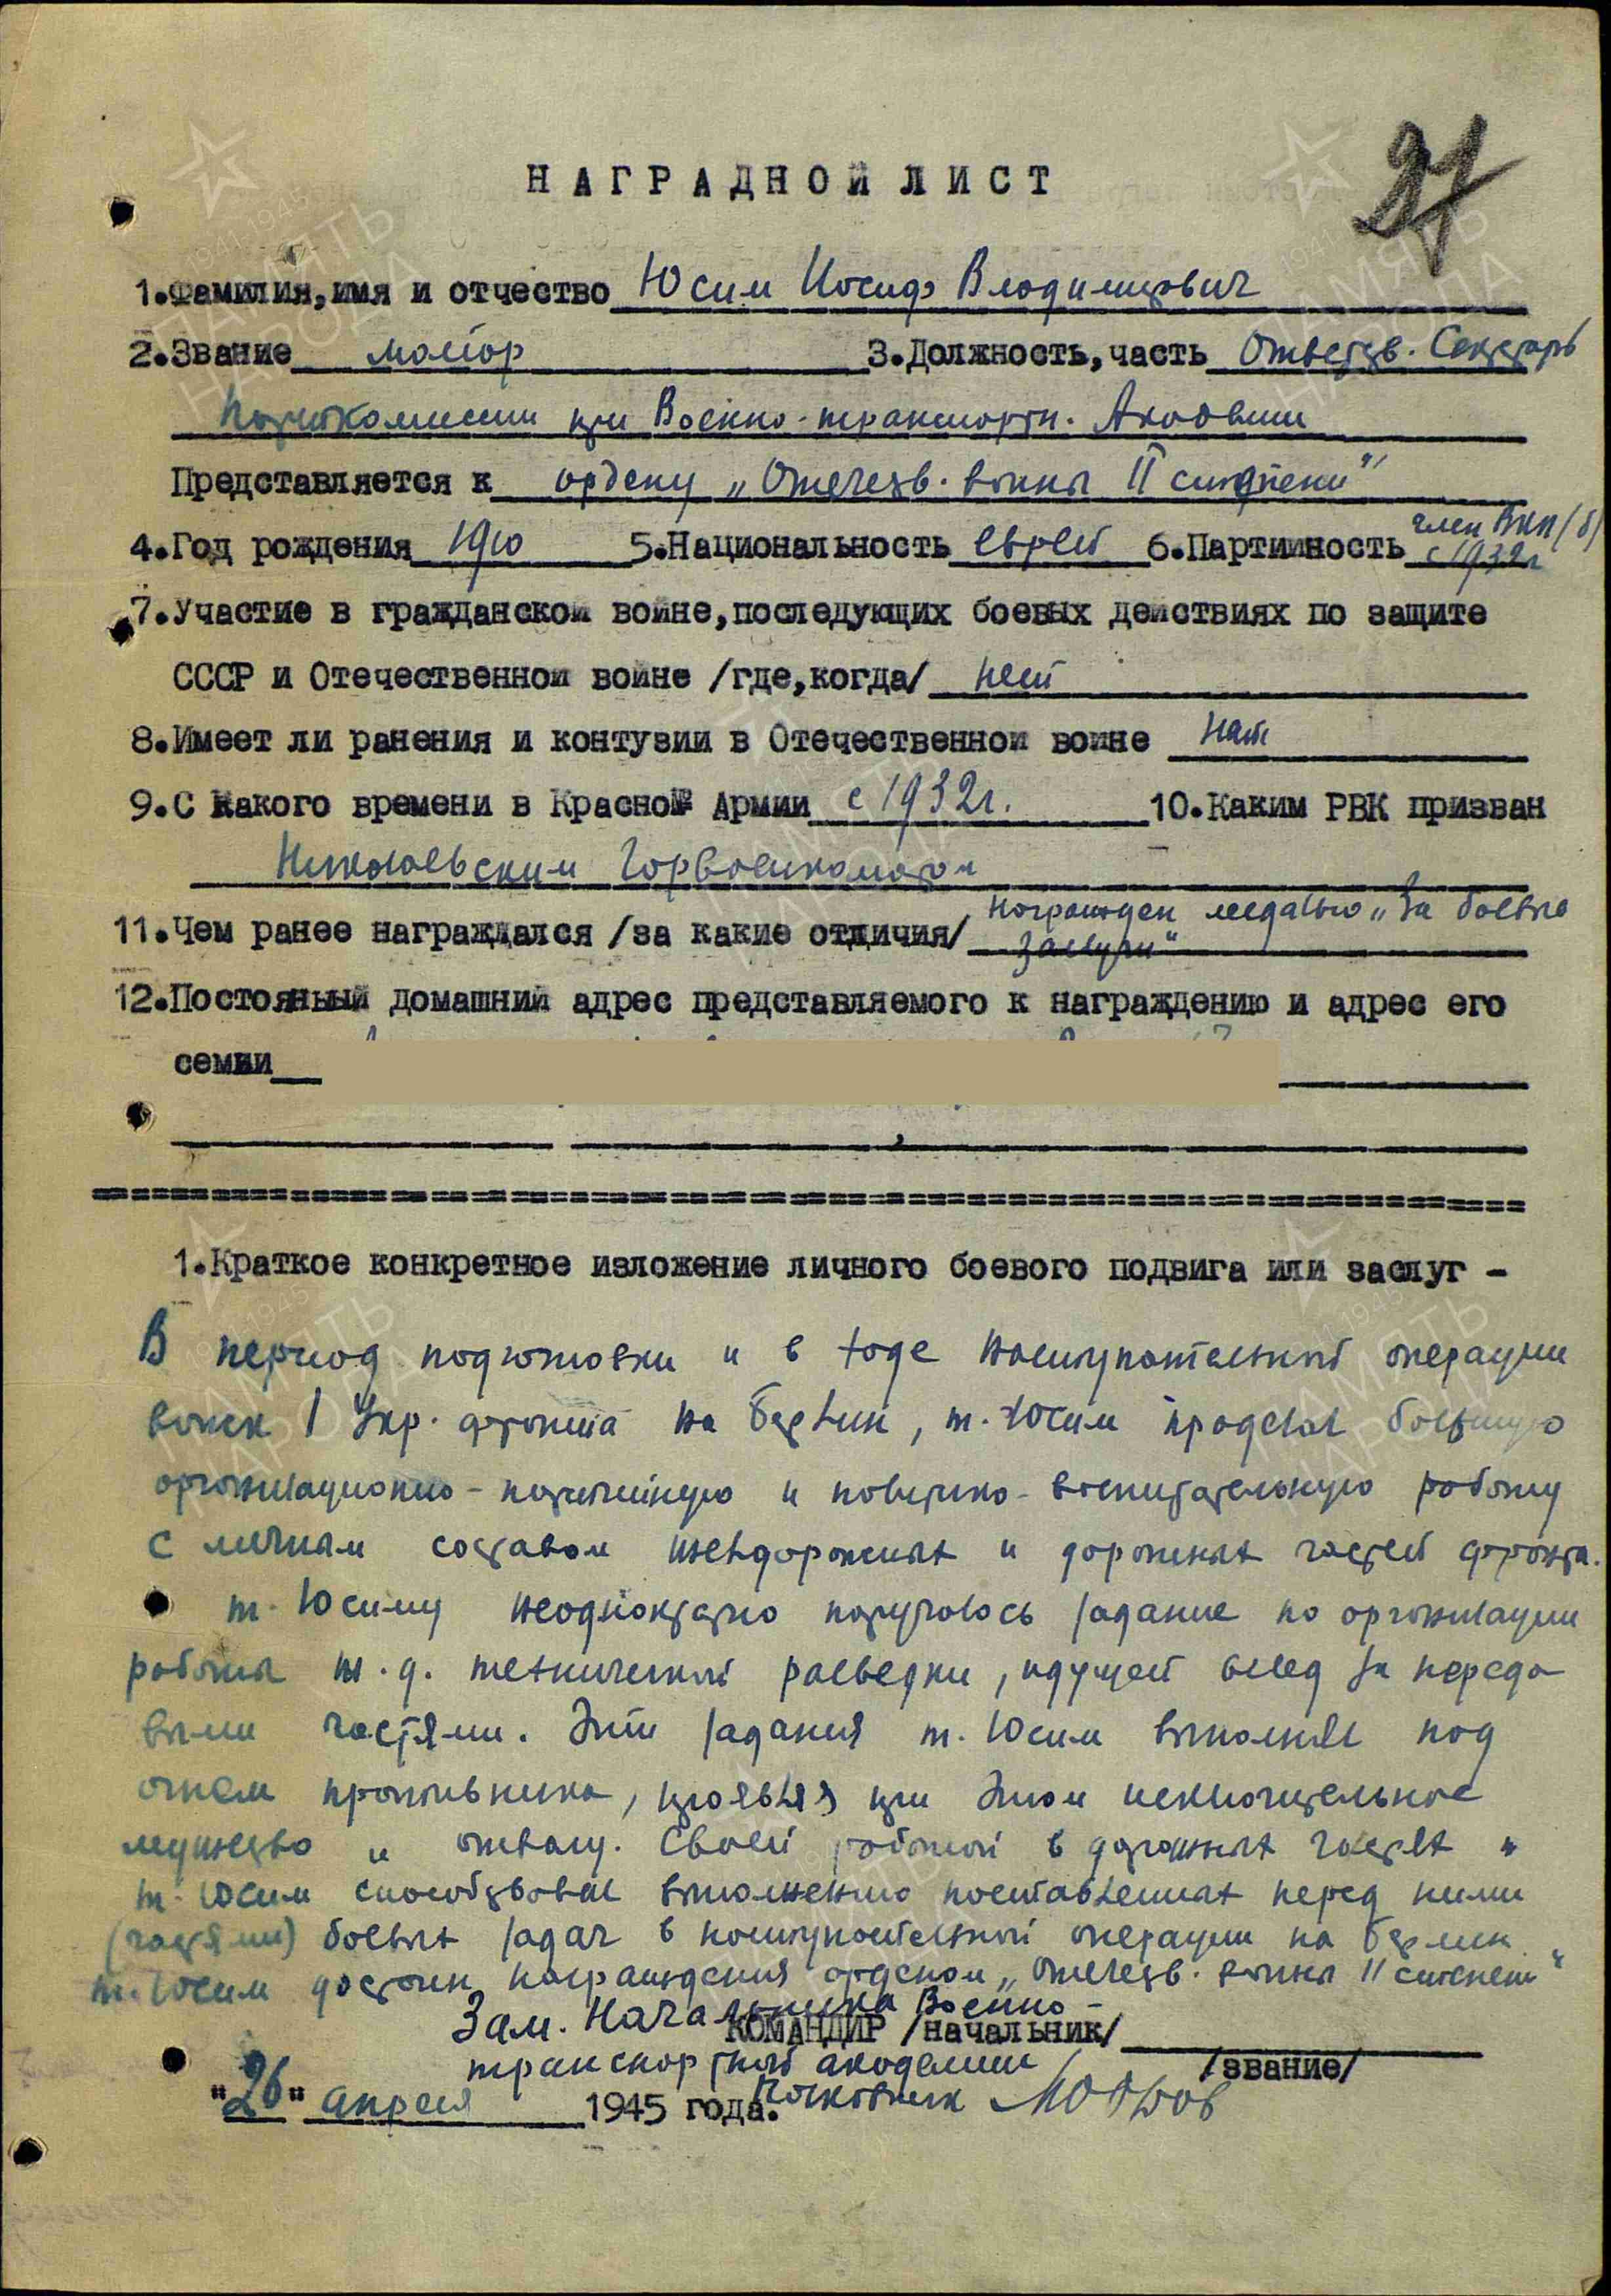 27
НАГРАДНОЙ ЛИСТ
1.Фамилия,имя и отчество Юсим Иосиф Владимирович
2.Звание майор 3.Должность,часть Ответств. Секретарь
Партколмиссии при Военно-транспортн. Академии
Представляется к ордену „Отечеств. войны II степени"
4.Год рождения 1910 5.Национальность еврей 6.Партийность член ВКП/б/ с 1932г
7.Участие в гражданской войне,последующих боевых действиях по защите
СССР и Отечественной войне /где,когда/ нет
8.Имеет ли ранения и контузии в Отечественной войне нет
9.С какого времени в Красной Армии с 1932г. 10.Каким РВК призван
Николаевским Горвоенкоматом
11.Чем ранее награждался /за какие отличия/ Награжден медалью „За боевые
заслуги"
12.Постоянный домашний адрес представляемого к награждению и адрес его
семьи
1.Краткое конкретное изложение личного боевого подвига или заслуг -
В период подготовки и в ходе наступательной операции
войск 1 Укр. фронта на Берлин, т. Юсим проделал большую
организационно-партийную и политико-воспитательную работу
с личным составом желдорожных и дорожных частей фронта.
т. Юсиму неоднократно поручалось задание по организации
работы ж.д. технической разведки, идущей вслед за передо
выми частями. Эти задания т. Юсим выполнял под
огнем противника, проявляя при этом исключительное
мужество и отвагу. Своей работой в дорожных частях
т. Юсим способствовал выполнению поставленных перед ними
(частями) боевых задач в наступательной операции на Берлин
т. Юсим достоин награждения орденом „Отечеств. войны II степени"
Зам. Начальника Военно-
КОМАНДИР /начальник/
транспортной академии
/звание/
"26" апреля 1945 года. Полковник
ПАМЯТЬ НАРОДА
1941 1945